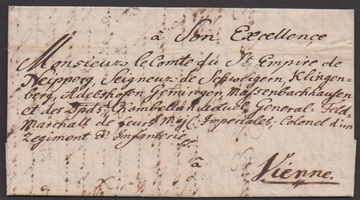 à Son Excellence
Monsieur le Comte du St Empire de
Neipperg, Seigneur de Schweigern, Klingen-
berg, Adelshofen, Gemingen, Massenbachhausen
et des Chambellan General Feld-
Marchall de Leurs Maj: Imperiales, Colonel d'un
Regiment d'Infanterie
à
Vienne.